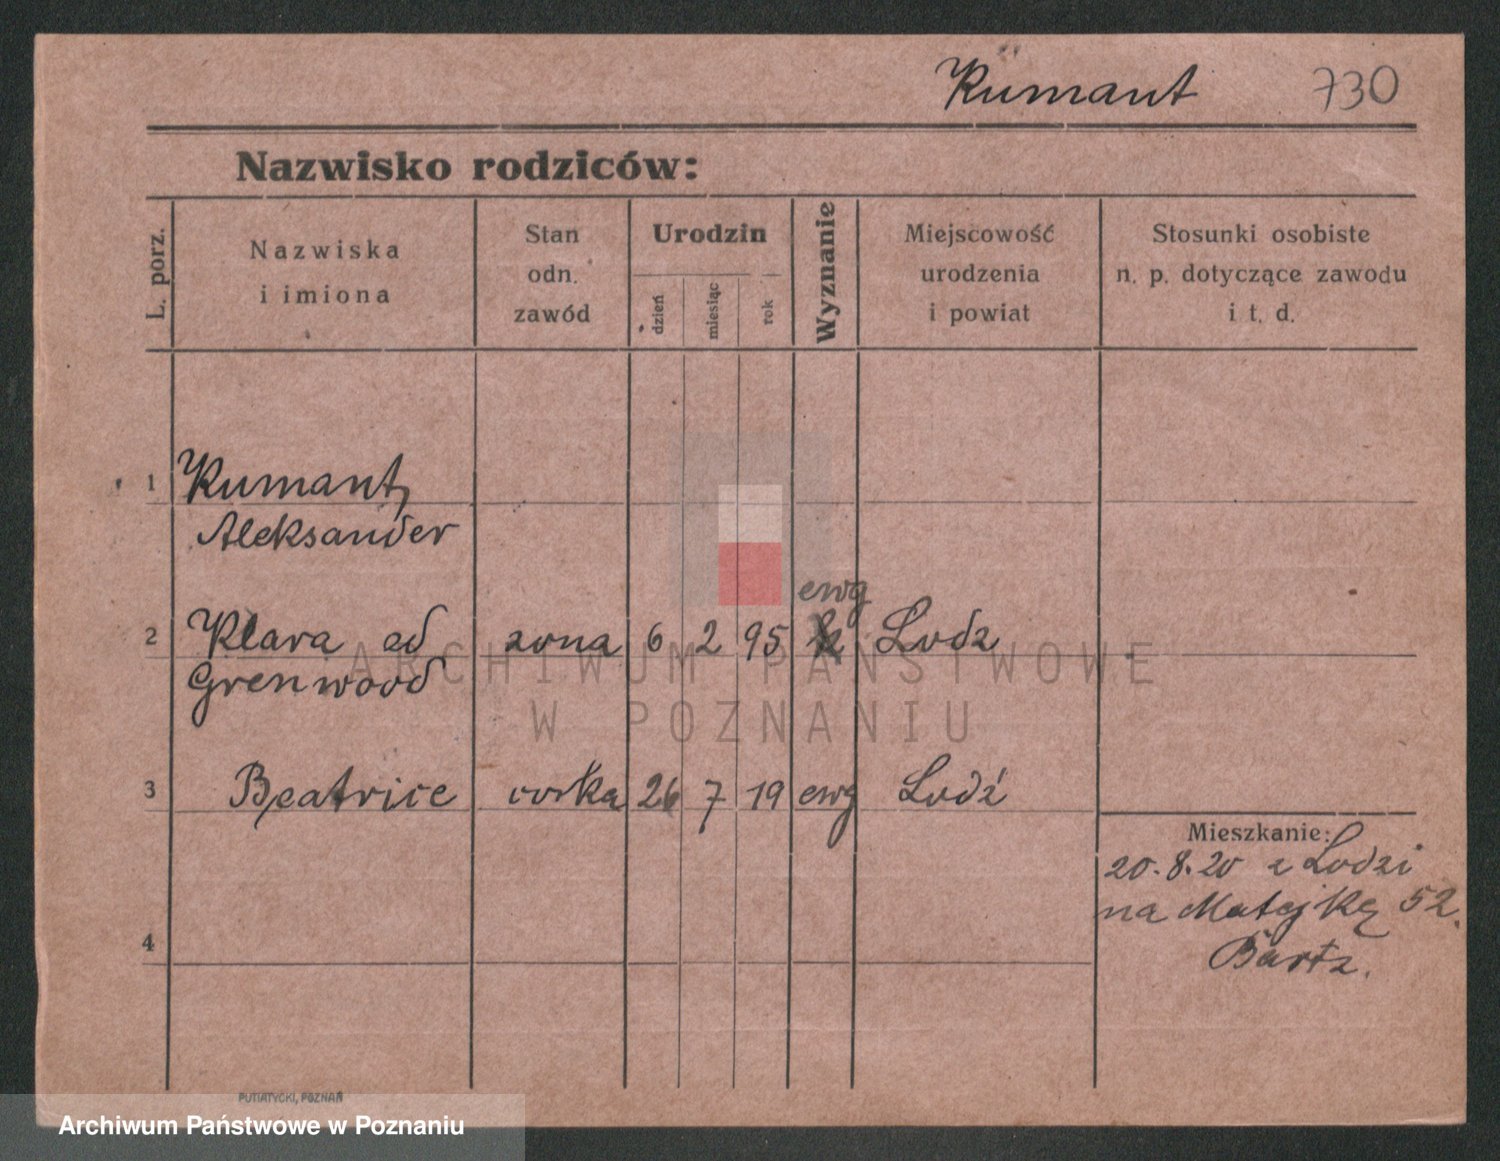 Kumant 730
Nazwisko rodziców:
L. porz.
Nazwiska
i imiona
Stan
odn.
zawód
Urodzin
dzień
miesiąc
rok
Wyznanie
Miejscowość
urodzenia
i powiat
Stosunki osobiste
n. p. dotyczące zawodu
i t. d.
1 Kumant,
Aleksander
ewg
2 Klara od zona 6 2 95 Lodz
Grenwood
ARCHIWUM PAŃSTWOWE
W POZNANIU
3 Beatrice corka 26 7 19 ewg Lodź
Mieszkanie:
20.8.20 z Lodzi
na Matejkę 52.
4
Bartz.
PUTIATYCKI, POZNAŃ
Archiwum Państwowe w Poznaniu